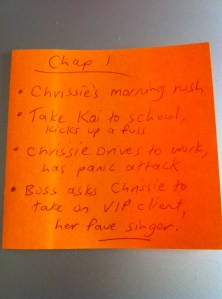 Chap 1
• Chrissie's morning rush
• Take Kai to school,
kicks up a fuss
• Chrissie Drives to work,
has panic attack
• Boss asks Chrissie to
take on VIP client,
her fave singer.